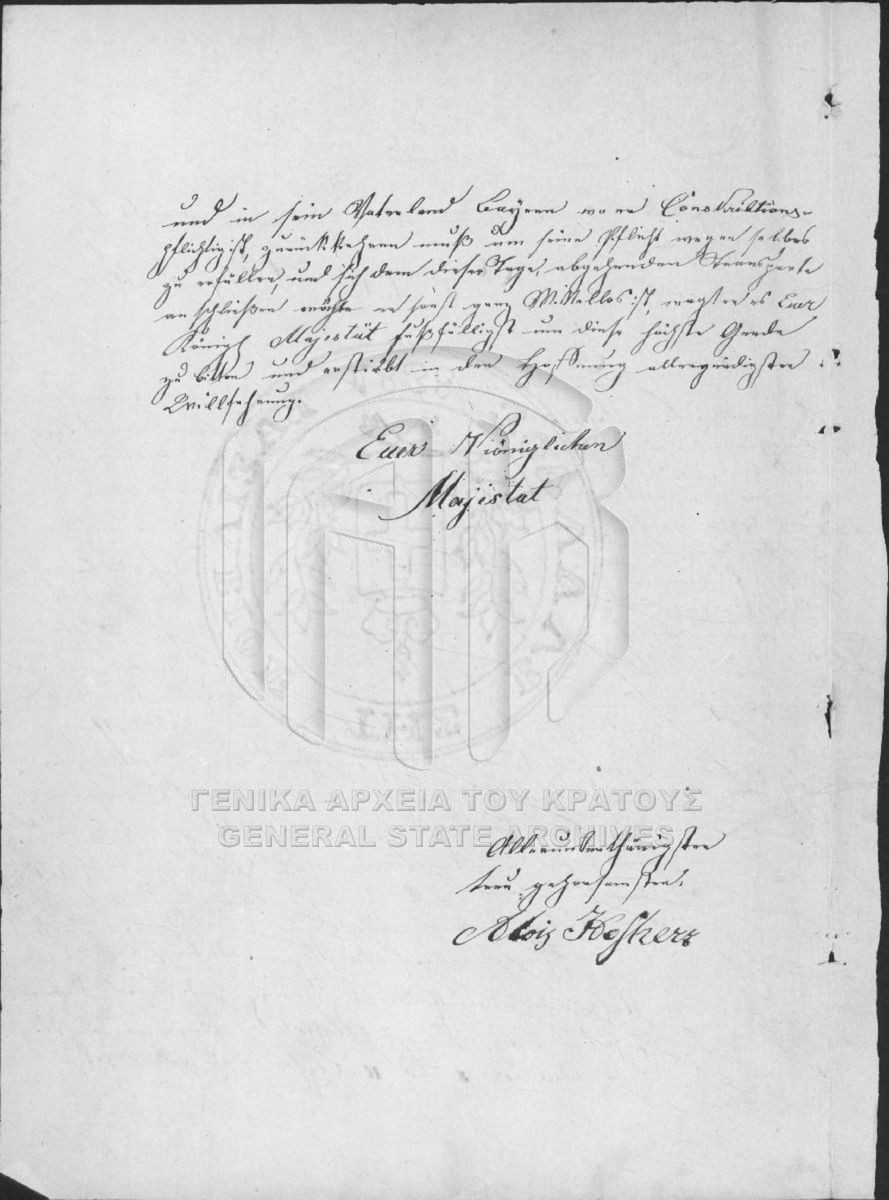 und in sein Vaterland Bayern wo er Conskriktions-
pflichtig ist, zurückkehren muß um seine Pflicht wegen selbes
zu erfüllen, und sich dem dieser Tage, abgehenden Transporte
anschließen möchte er sonst ganz Mittellos ist, wagt er es Euer
Königl Majestät fußfälligst um diese höchste Gnade
zu bitten und erstirbt in der Hoffnung allergnädigster
Willfahrung.
Euer Königlichen
Majestät
ΓΕΝΙΚΑ ΑΡΧΕΙΑ ΤΟΥ ΚΡΑΤΟΥΣ
GENERAL STATE ARCHIVES
Allerunterthänigster
treu gehorsamster
Alois